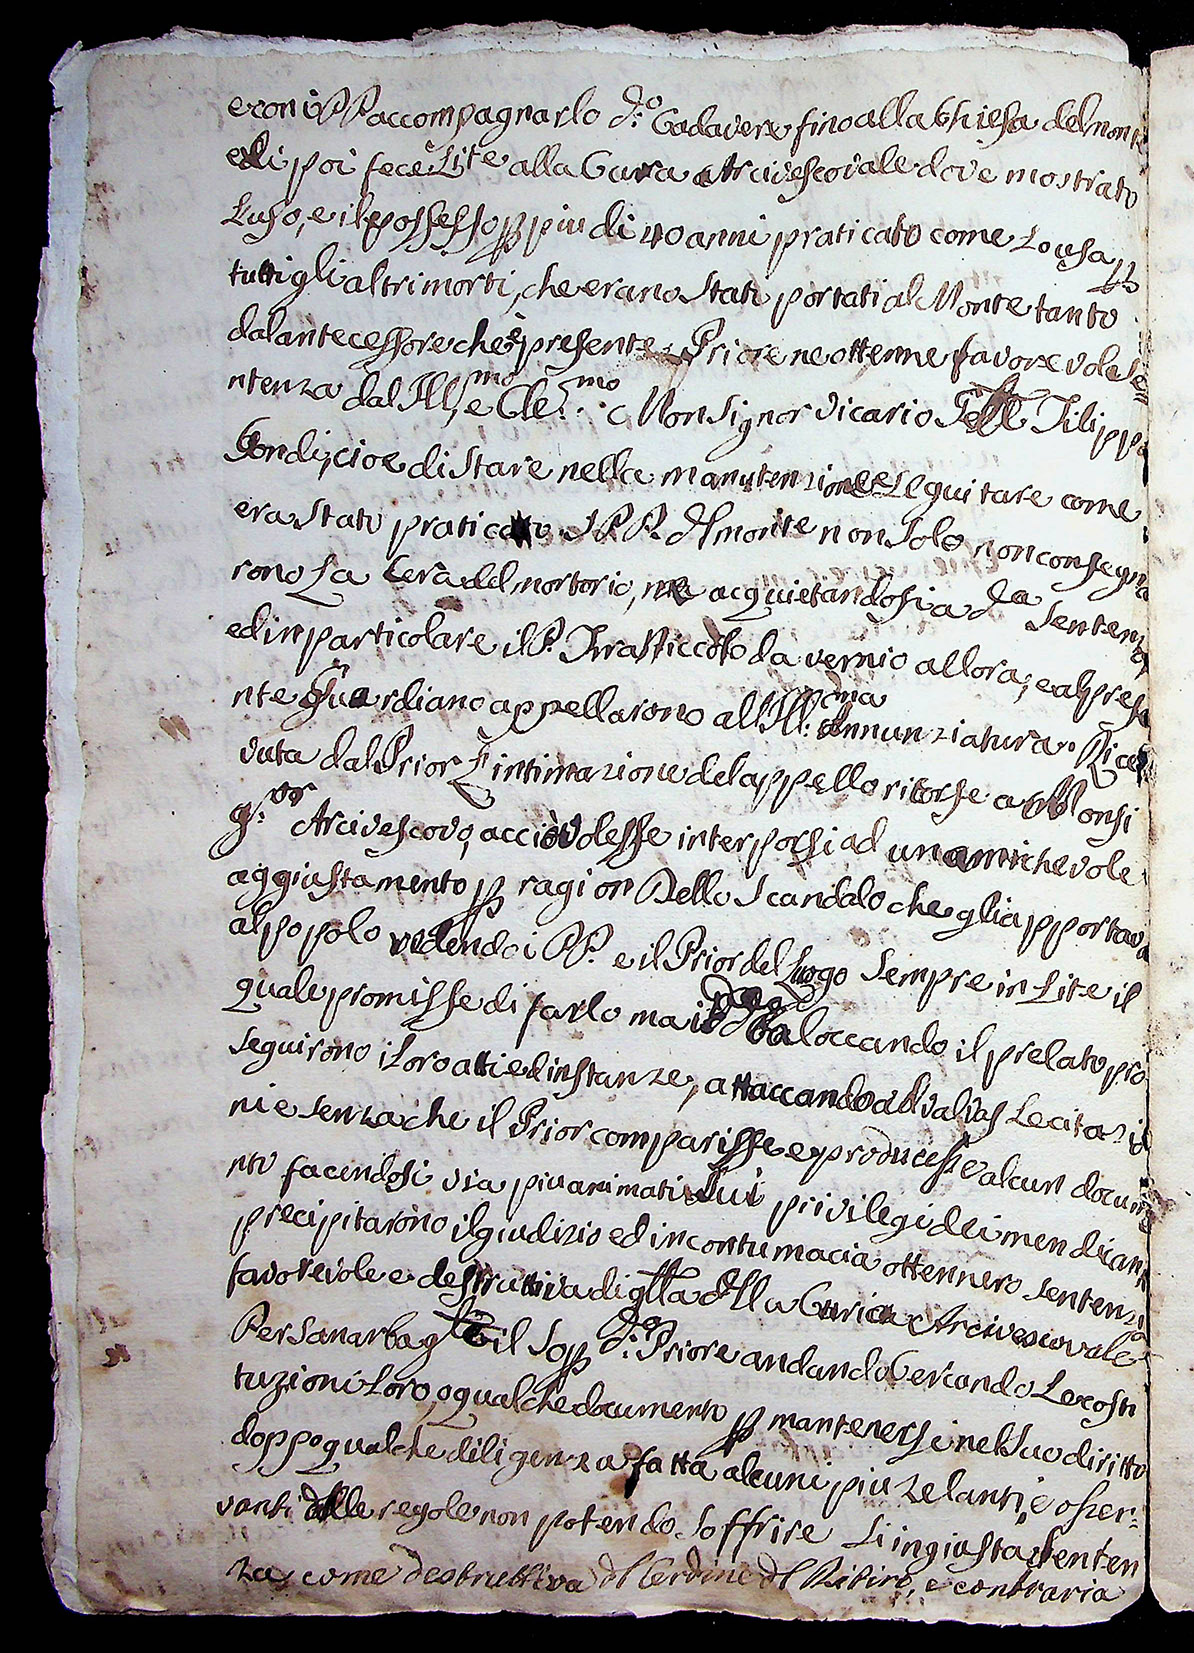 eron i PP accompagnarlo do. Cadavere fino alla Chiesa del mon
e di poi fece Lite alla Curia Arcivescovale dove mostrato
L'uso, e il possesso p più di 40 anni praticato come Lo usa p
tutti gli altri morti, che erano stati portati al Monte tanto
dal antecessore che presente Priore ne ottenne favorevole Se
ntenza dal Ill,mo e Cle:mo Monsignor Vicario Filipp
Condi, cioe di Stare nella manutenzione e Seguitare come
era Stato praticato I PP. dl monte non Solo non consegna
rono La Cera del mortorio, ne acquietandosi a da Sentenz
ed in particolare il P. Fra Niccolo da vernio allora, e al prese
nte Guardiano appellarono all Ill:ma Annunziatura. Rice
vuta dal Prior L'intimazione del appello ricorse a Monsi
g:or Arcivescovo, acciò volesse interporsi ad un amichevole
aggiustamento p ragion Dello Scandalo che gli apportava
al popolo vedendo i PP. e il Prior del Luogo Sempre in Lite il
quale promisse di farlo ma baloccando il prelato pro
seguirono i Loro atti ed instanze, attaccando ad valvas Le citazio
ni e senza che il Prior comparisse e producesse alcun docume
nto facendosi via più animati Sui privilegi dei mendicanti
precipitarono il giudizio ed in contumacia ottennero Sentenza
favorevole e destruttiva di qlla dlla Curia Arcivescovale
Per Sanar la il Sop do. Priore andando Cercando Le costi
tuzioni Loro, o qualche documento p mantenersi nel Suo diritto
doppo qualche diligenza fatta alcuni piu zelanti, e osser=
vanti delle regole non potendo Soffrire Si ingiusta Senten
za, come destruttiva dl Cerdine dl Ritiro, e contraria